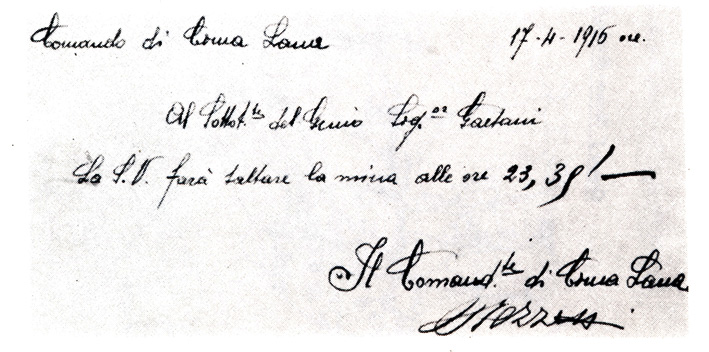 Comando di Cima Lana 17-4-1916 ore.
Al Sottot.te del Genio Sig.or Gaetani
La S.V. farà saltare la mina alle ore 23,35'—
Il Comand.te di Cima Lana